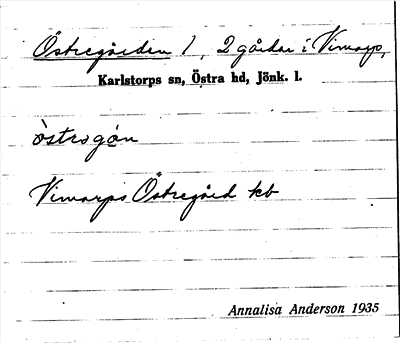 Östregården 1, 2 gårdar i Vimarp,
Karlstorps sn, Östra hd, Jönk. l.
òstrogán
Vimarps Östregård kb
Annalisa Anderson 1935